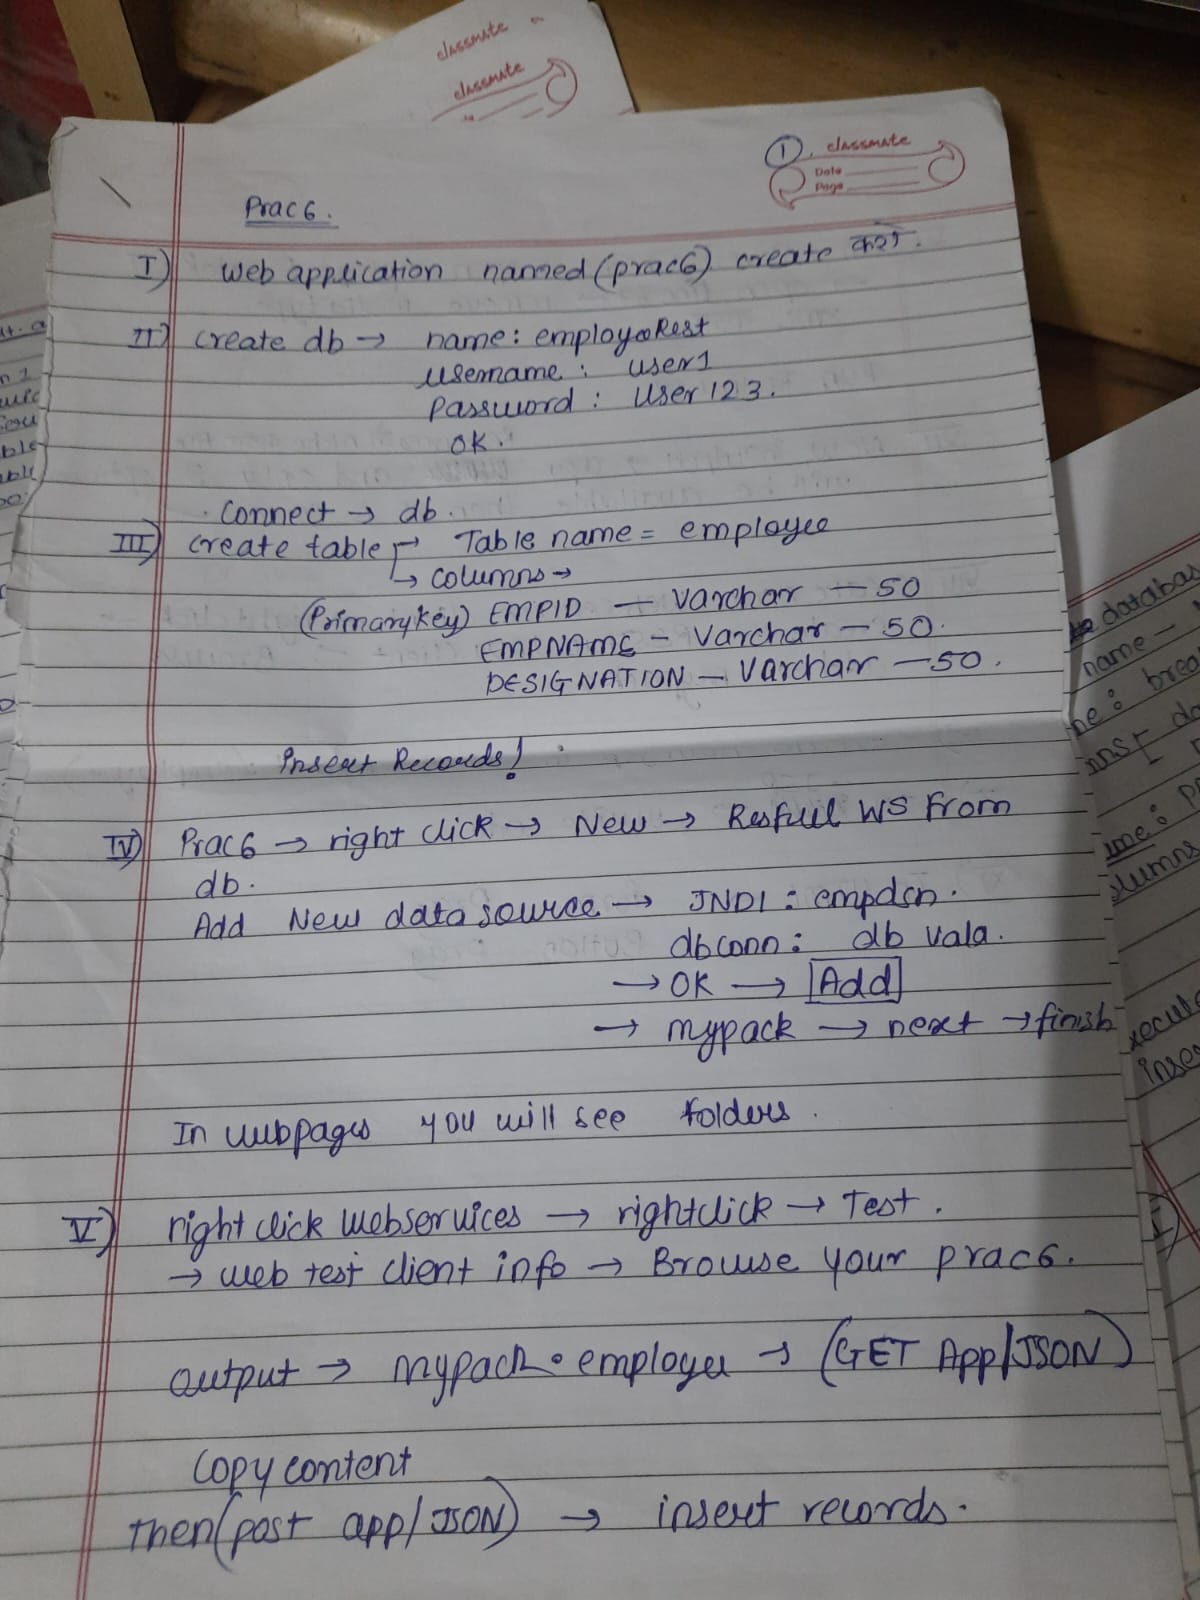 classmate
classmate
1. classmate
Date
Page
Prac 6.
I) Web application named (prac6) create करो.
II) create db → name: employeeRest
username: user1
Password: User 123.
OK.
Connect → db.
III) create table → Table name = employee
↳ columns →
(Primary key) EMPID — Varchar — 50
EMPNAME — Varchar — 50.
DESIGNATION — Varchar — 50.
Insert Records!
IV) Prac6 → right click → New → Resfuel WS From
db.
Add New data source → JNDI: empdsn.
dbconn: db vala.
→ OK → Add
→ mypack → next → finish
In webpages you will see folders.
V) right click webservices → rightclick → Test.
→ web test client info → Browse your prac6.
output → mypack.employee → (GET App/JSON)
Copy content
then (post app/JSON) → insert records.
database
name —